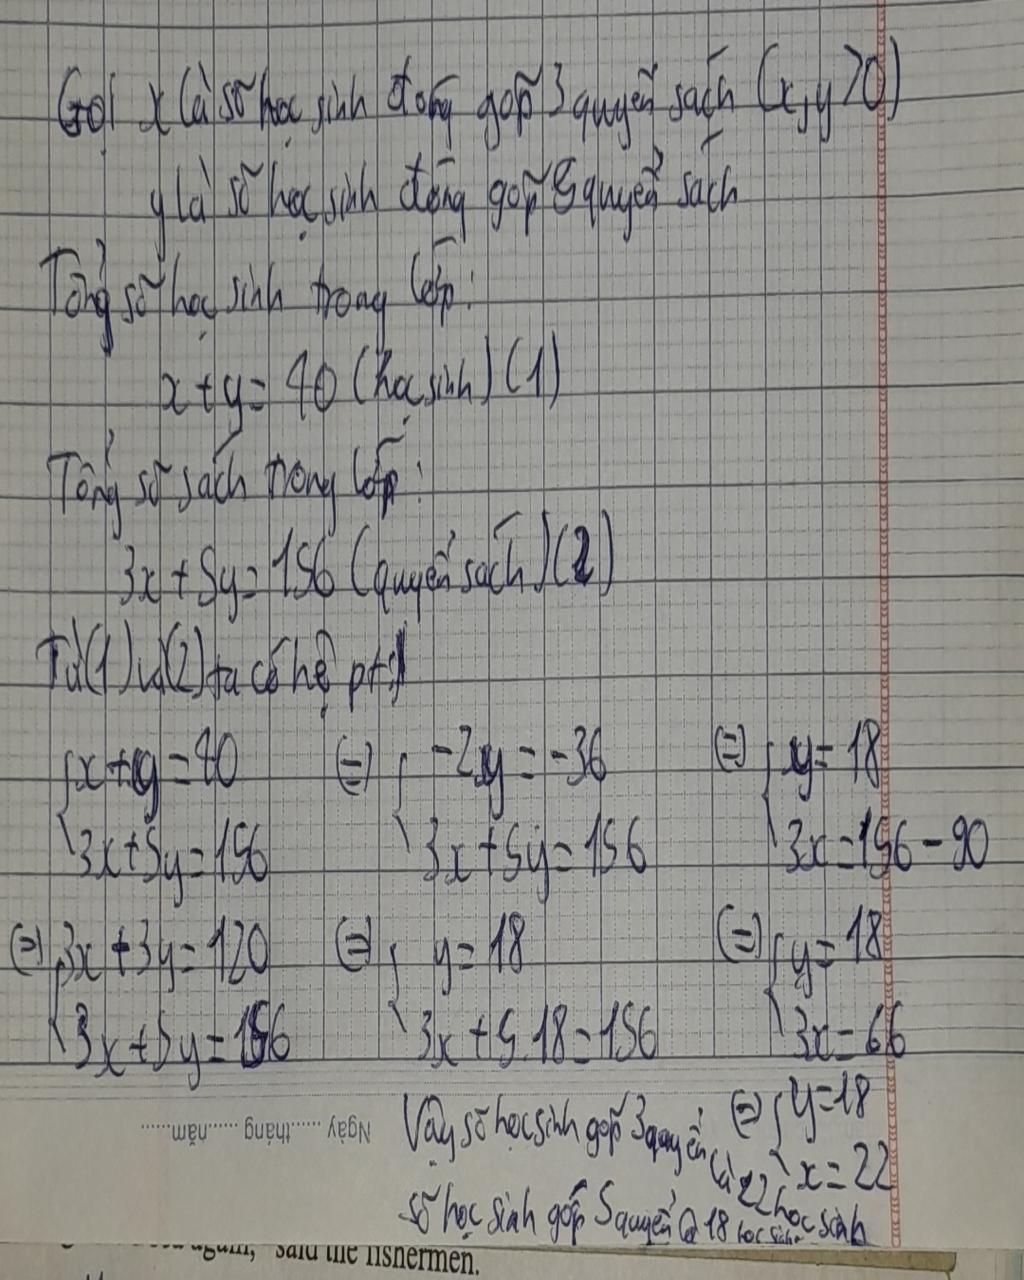 Gọi x là số học sinh đóng góp 3 quyển sách (x,y>0)
y là số học sinh đóng góp 5 quyển sách
Tổng số học sinh trong lớp:
x+y= 40 (học sinh) (1)
Tổng số sách trong lớp:
3x + 5y= 156 (quyển sách) (2)
Từ (1) và (2) ta có hệ pt:
{x+y=40 (=) { -2y = -36 (=) { y= 18
3x+5y=156 3x+5y=156 3x=156-90
(=) {3x+3y=120 (=) { y= 18 (=) {y= 18
3x+5y=156 3x+5.18=156 3x=66
(=) {y=18
x=22
Ngày ......tháng ......năm......
Vậy số học sinh góp 3 quyển là 22 học sinh
số học sinh góp 5 quyển là 18 học sinh
said the fishermen.